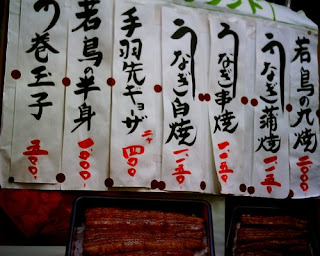 若鳥の丸焼
二〇〇〇
うなぎ蒲焼
一、一五〇
うなぎ串焼
一、一五〇
うなぎ白焼
一、一五〇
手羽先ギョザ
二ケ
四〇〇
若鳥の半身
一〇〇〇
う巻玉子
五〇〇